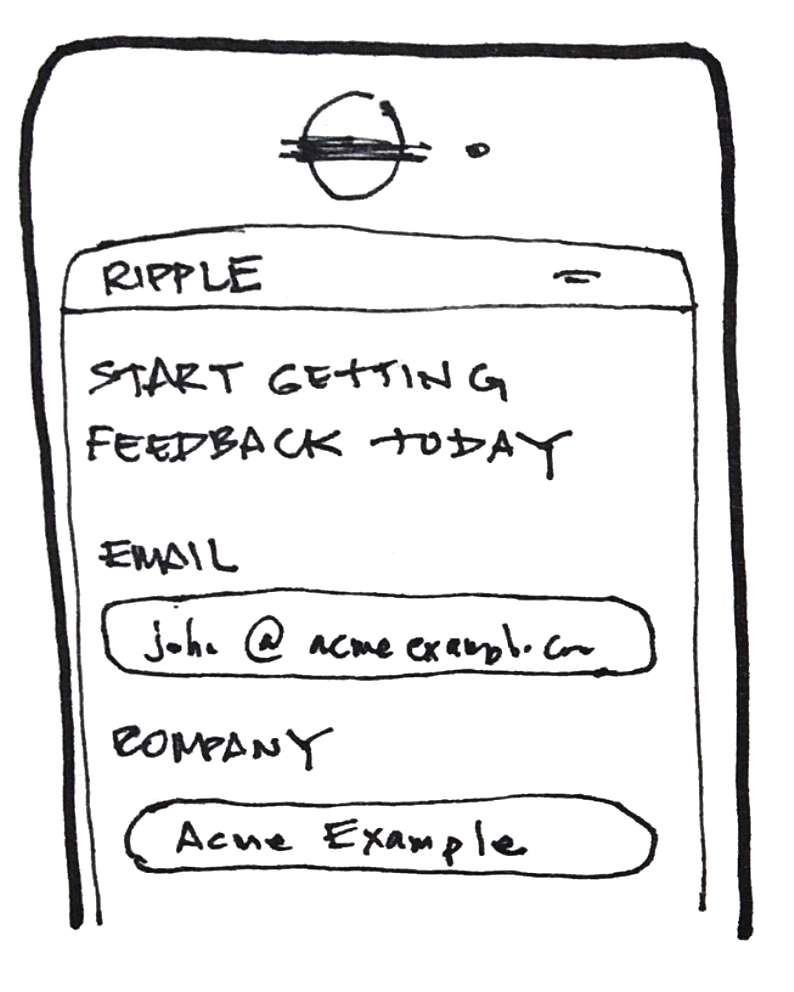 RIPPLE
START GETTING
FEEDBACK TODAY
EMAIL
john @ acme example.com
COMPANY
Acme Example